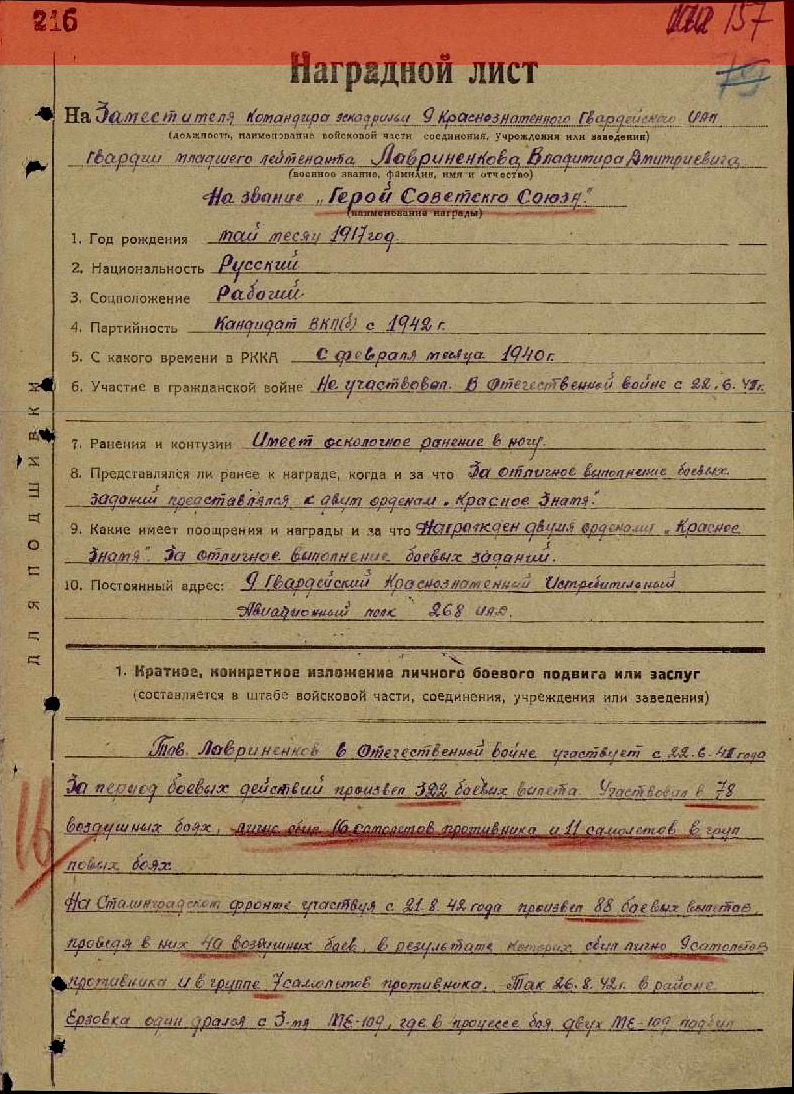 216
157
79
Наградной лист
На Заместителя Командира эскадрильи 9 Краснознаменного Гвардейского ИАП
(должность, наименование войсковой части соединения, учреждения или заведения)
Гвардии младшего лейтенанта Лавриненкова Владимира Дмитриевича
(военное звание, фамилия, имя и отчество)
На звание „Герой Советскго Союза"
(наименование награды)
1. Год рождения май месяц 1917 год.
2. Национальность Русский
3. Соцположение Рабочий
4. Партийность Кандидат ВКП(б) с 1942 г.
5. С какого времени в РККА С февраля месяца 1940 г.
6. Участие в гражданской войне Не участвовал. В Отечественной войне с 22.6.41г.
7. Ранения и контузии Имеет осколочное ранение в ногу.
8. Представлялся ли ранее к награде, когда и за что За отличное выполнение боевых
заданий представлялся к двум орденам „Красное Знамя".
9. Какие имеет поощрения и награды и за что Награжден двумя орденами „Красное
Знамя". За отличное выполнение боевых заданий.
10. Постоянный адрес: 9 Гвардейский Краснознаменный Истребительный
Авиационный полк 268 ИАД.
ДЛЯ ПОДШИВКИ
1. Краткое, конкретное изложение личного боевого подвига или заслуг
(составляется в штабе войсковой части, соединения, учреждения или заведения)
Тов. Лавриненков в Отечественной войне участвует с 22.6.41 года
За период боевых действий произвел 322 боевых вылета. Участвовал в 78
воздушных боях, лично сбил 16 самолетов противника и 11 самолетов в груп
повых боях.
16
На Сталинградском фронте участвуя с 21.8.42 года произвел 88 боевых вылетов,
проведя в них 40 воздушных боев, в результате которых сбил лично 9 самолетов
противника и в группе 7 самолетов противника. Так 26.8.42г. в районе
Ерзовка один дрался с 3-мя МЕ-109, где в процессе боя двух МЕ-109 подбил